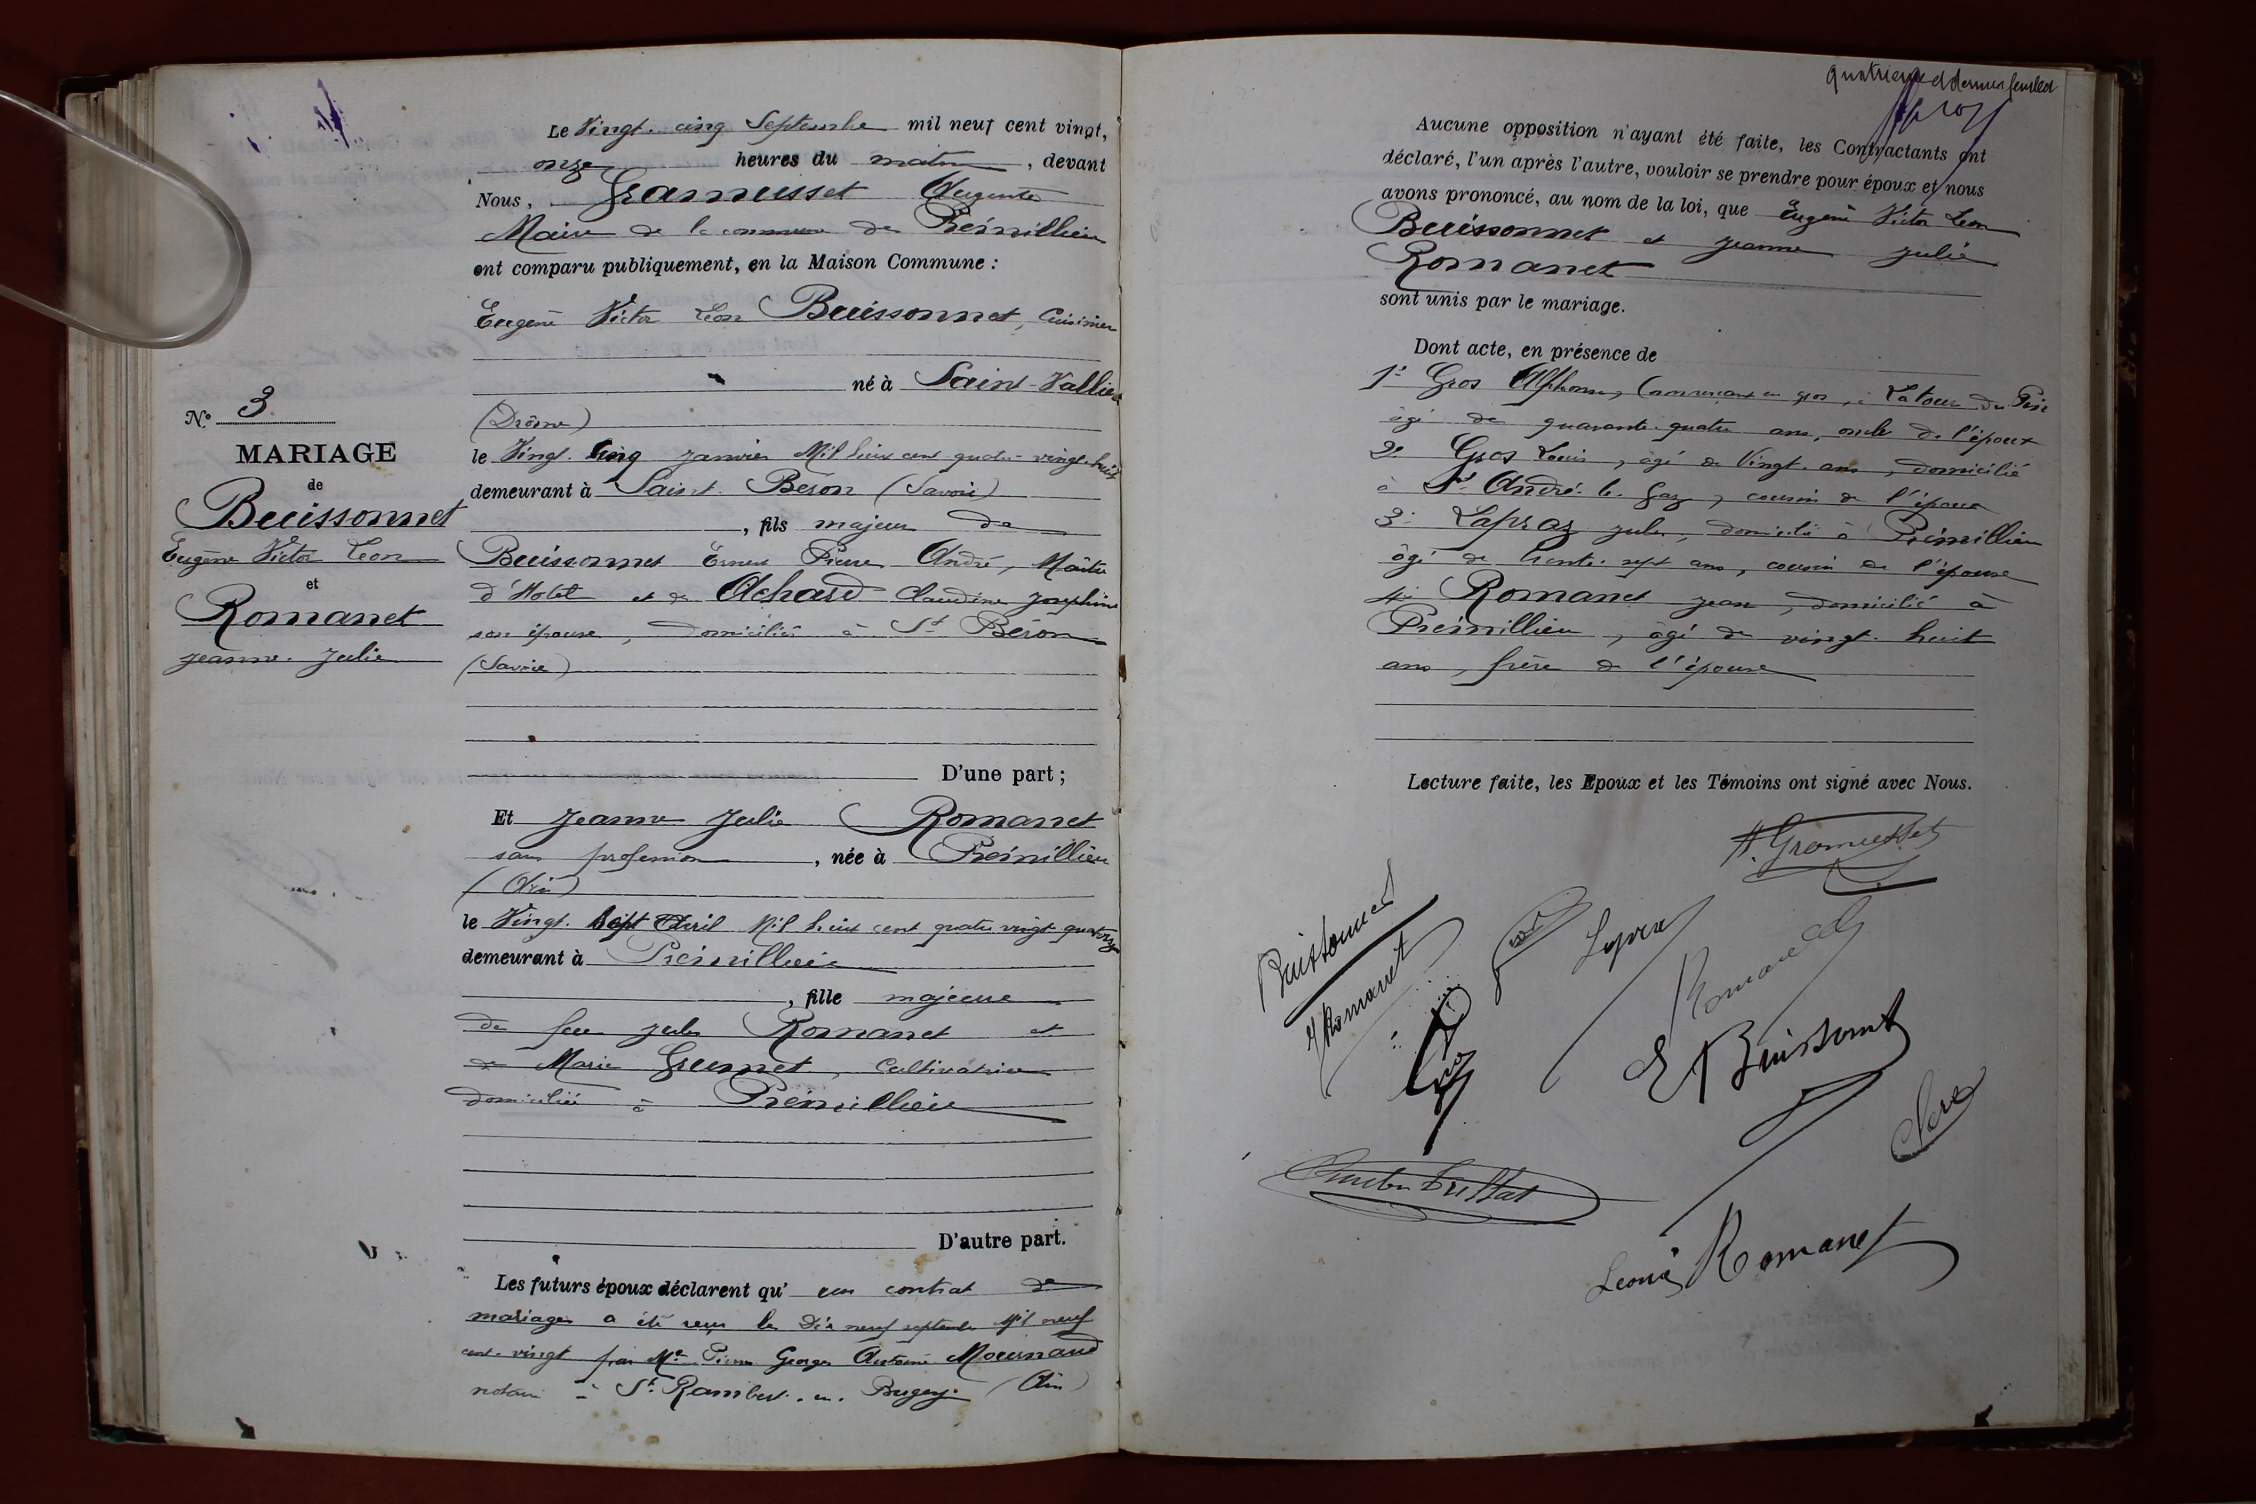 Le Vingt-cinq Septembre mil neuf cent vingt,
onze heures du matin, devant
Nous, Gramusset Auguste
Maire de la commune de Prémillieu
ont comparu publiquement, en la Maison Commune :
Eugène Victor Léon Buissonnet, Cuisinier
né à Saint-Vallier
(Drôme)
le Vingt-Cinq janvier Mil huit cent quatre-vingt-huit
demeurant à Saint-Béron (Savoie)
, fils majeur de
Buissonnet Ernest Pierre André, Maître
d'Hotel et de Achard Claudine Joséphine
son épouse, domiciliés à St Béron
(Savoie)
D'une part ;
N° 3
MARIAGE
de
Buissonnet
Eugène Victor Léon
et
Romanet
Jeanne-Julie
Et Jeanne Julie Romanet
sans profession, née à Prémillieu
(Ain)
le Vingt-Sept Avril Mil huit cent quatre vingt quatorze
demeurant à Prémillieu
, fille majeure
de feu Jules Romanet et
de Marie Grumet, Cultivatrice
domiciliée à Prémillieu
D'autre part.
Les futurs époux déclarent qu'un contrat de
mariage a été reçu le Dix neuf septembre Mil neuf
cent-vingt par Me Pierre Georges Antoine Mournaud
notaire à St-Rambert-en-Bugey (Ain)
quatrième et dernier feuillet
Aucune opposition n'ayant été faite, les Contractants ont
déclaré, l'un après l'autre, vouloir se prendre pour époux et nous
avons prononcé, au nom de la loi, que Eugène Victor Léon
Buissonnet et Jeanne Julie
Romanet
sont unis par le mariage.
Dont acte, en présence de
1° Gros Alphonse, Commerçant en gros, à Latour du Pin
âgé de quarante-quatre ans, oncle de l'époux
2° Gros Louis, âgé de Vingt ans, domicilié
à St André-le-Gaz, cousin de l'époux
3° Lapraz Jules, domicilié à Prémillieu
âgé de trente-sept ans, cousin de l'épouse
4° Romanet Jean, domicilié à
Prémillieu, âgé de vingt-huit
ans, frère de l'épouse
Lecture faite, les Epoux et les Témoins ont signé avec Nous.
A. Gramusset
Buissonnet
J Romanet
Romanet
E Buissonnet
Léonie Romanet